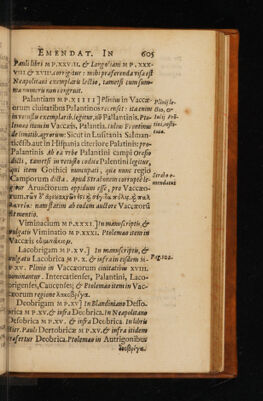 EMENDAT. IN 605
Pauli libri M P. XXVII. & Longoliani M P. XXX-
VIII & XVIII. corrigitur: mihi præferenda visa est
Neapolitani exemplaris lectio, tametsi cum sum-
ma numeri non congruit.
Palantiam M P. XIIII] Plinius in Vaccæ-
orum ciuitatibus Pallantinos recenset: ita enim
in vetustis exemplaribus legitur, nō Pallantinis. Pto-
lemæo item in Vaccæis, Palantia. rursus Frontinus
de limitib. agrorum: Sicut in Lusitania Salman-
ticēsib. aut in Hispania citeriore Palatinis: pro
Palantinis. Ab ea vrbe Palantini campi Orosio
dicti, tametsi in vetusto codice Palentini legitur,
qui item Gothici nuncupati, qua nunc regio
Camporum dicta. Apud Strabonem corruptè le-
gitur Aruacorum oppidum esse, pro Vaccæo-
rum.
nam statim ab eodem audtore Vaccæorū
fit mentio.
Viminacium M P. XXXI.] In manuscriptis, &
vulgatis Viminatio M P. XXXI. Ptolemæo item in
Vaccæis
Lacobrigam M P. XV.] In manuscriptis, &
vulgatis Lacobrica M P. X. & infra in eisdem M-
P. XV. Plinio in Vaccæorum ciuitatibus XVIII.
nominantur. Intercatienses, Palantini, Laco-
brigenses, Caucenses; & Ptolemæo item in Vac-
cæorum regione
Deobrigam M P. XV] In Blandiniano Desso-
brica M P. XV. & infra Deobrica. In Neapolitano
Desobrica M P. XV. & infra Deobrica. In libris
item Pauli Dertobrica M P. XV. & infra itidem
refertur Deobrica. Ptolemæo in Autrigonibus
Plinij le-
ctio, &
Iulij Frō-
tini, resti-
tuta.
Strabo e-
mendatus
Pag. 102.